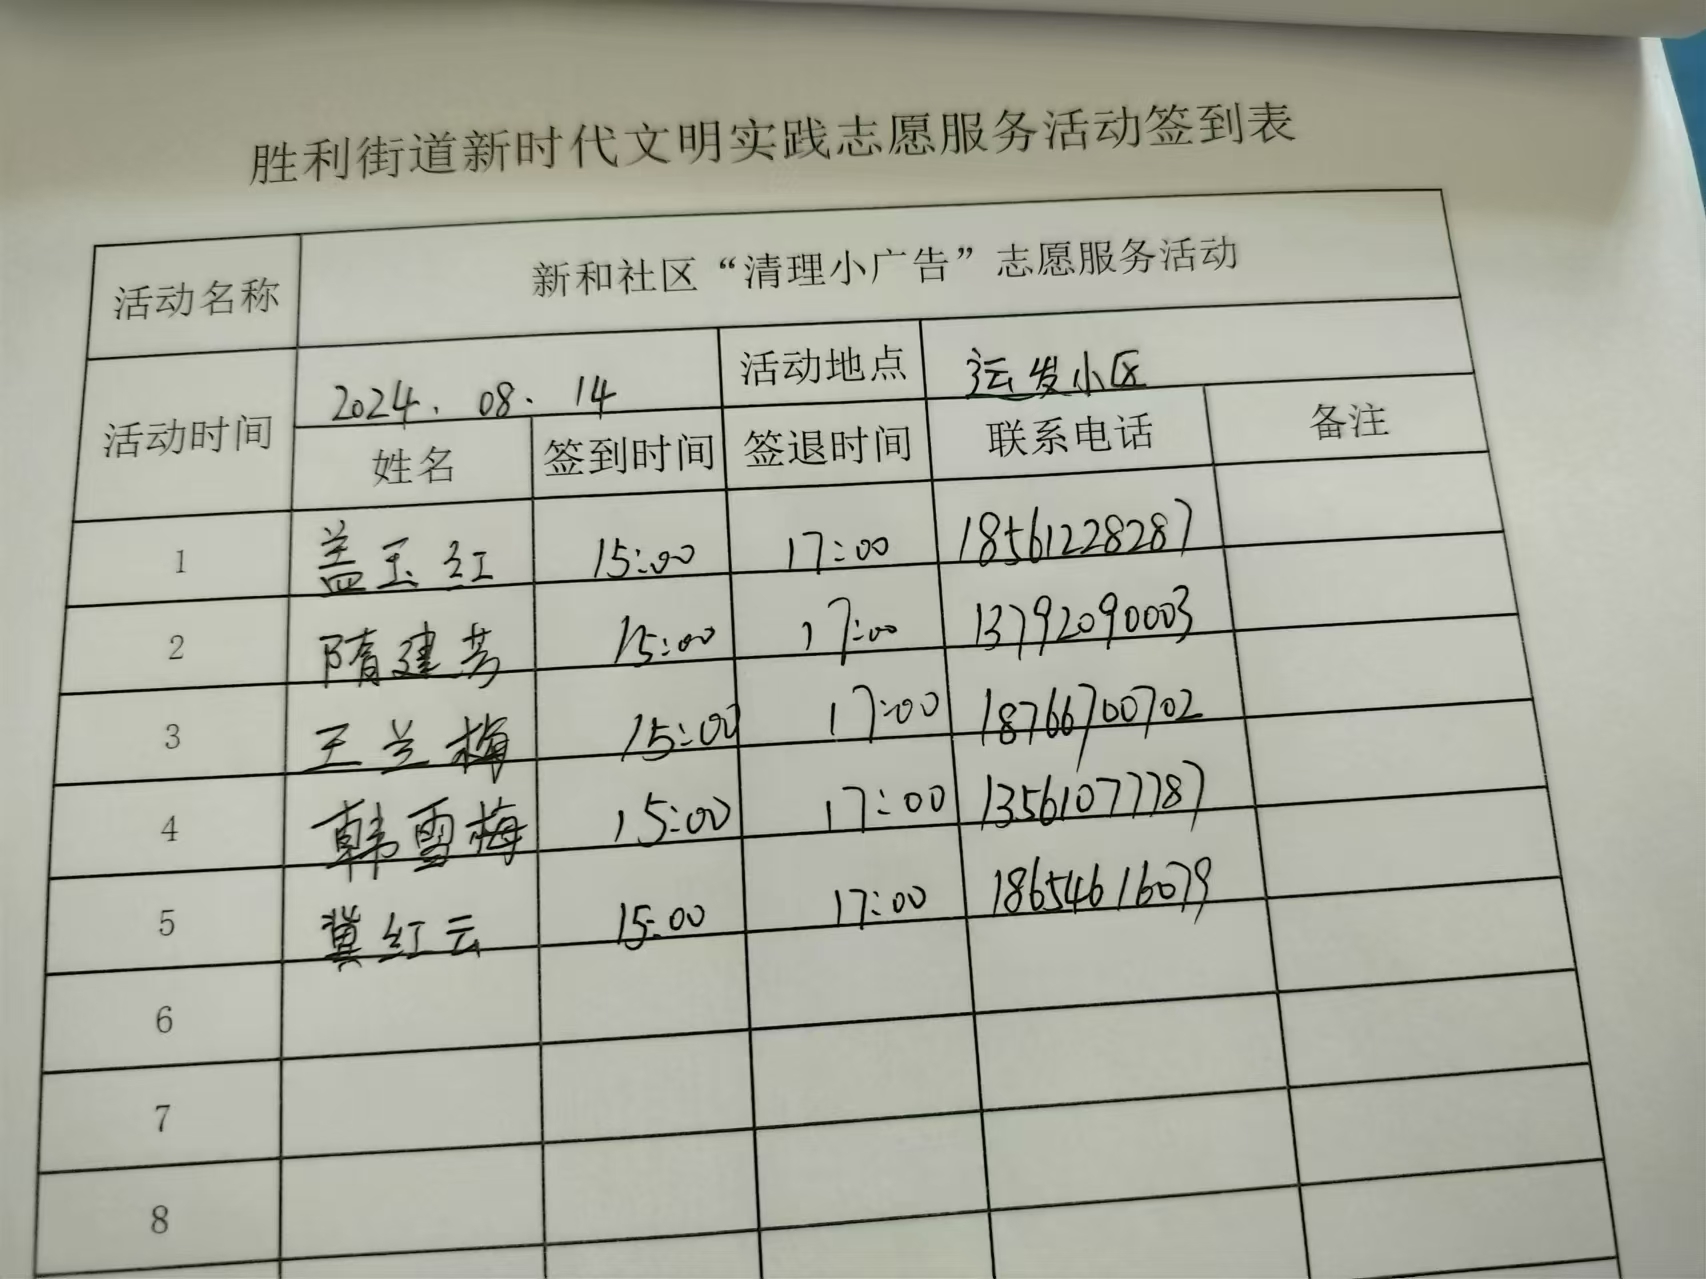 胜利街道新时代文明实践志愿服务活动签到表
活动名称 新和社区“清理小广告”志愿服务活动
活动时间 2024.08.14 活动地点 运发小区
姓名 签到时间 签退时间 联系电话 备注
1 盖玉红 15:00 17:00 18561228287
2 隋建芳 15:00 17:00 13792090003
3 王兰梅 15:00 17:00 18766700702
4 韩雪梅 15:00 17:00 13561077787
5 冀红云 15:00 17:00 18654616079
6
7
8